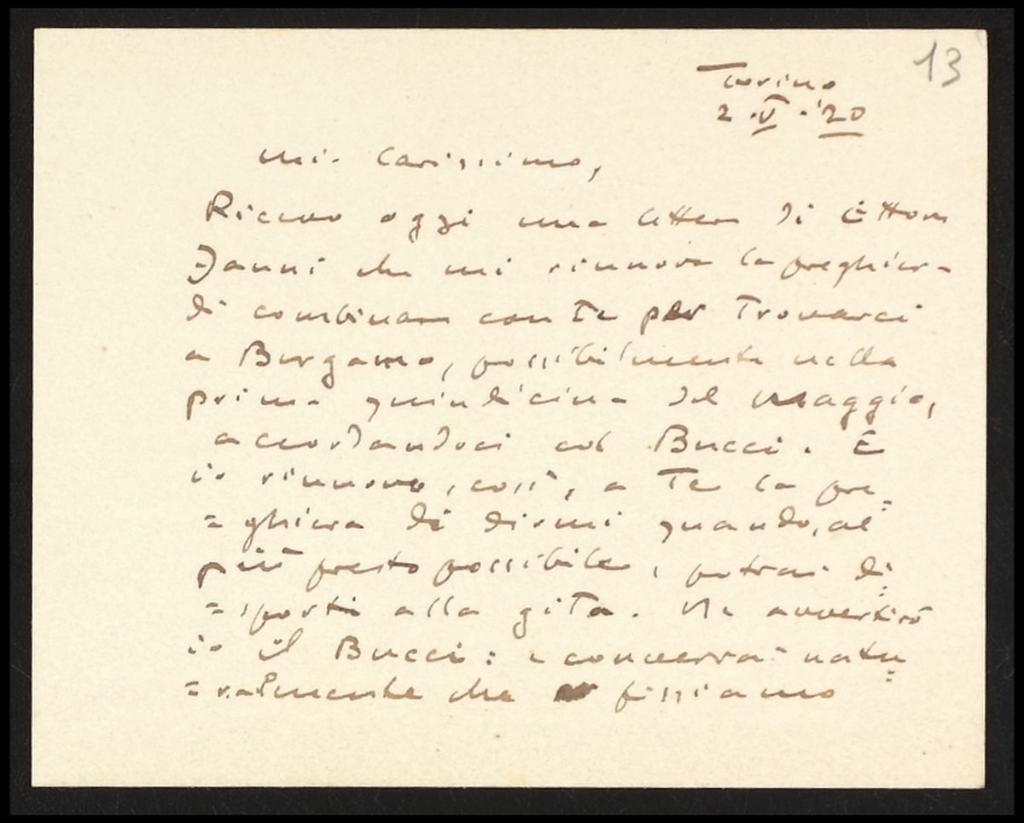 13
Torino
2.V.'20
mio Carissimo,
Ricevo oggi una lettera di Ettore
Janni che mi rinnova la preghiera
di combinare con Te per Trovarci
a Bergamo, possibilmente nella
prima quindicina del Maggio,
accordandoci col Bucci. E
io rinnovo, così, a Te la pre=
=ghiera di dirmi quando, al
più presto possibile, potrai di=
=sporti alla giTa. Ne avvertirò
io il Bucci: e converrai natu=
=ralmente che fissiamo